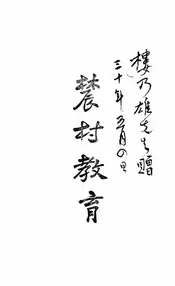 樓乃雄先生贈
三十年五月四日
農村教育